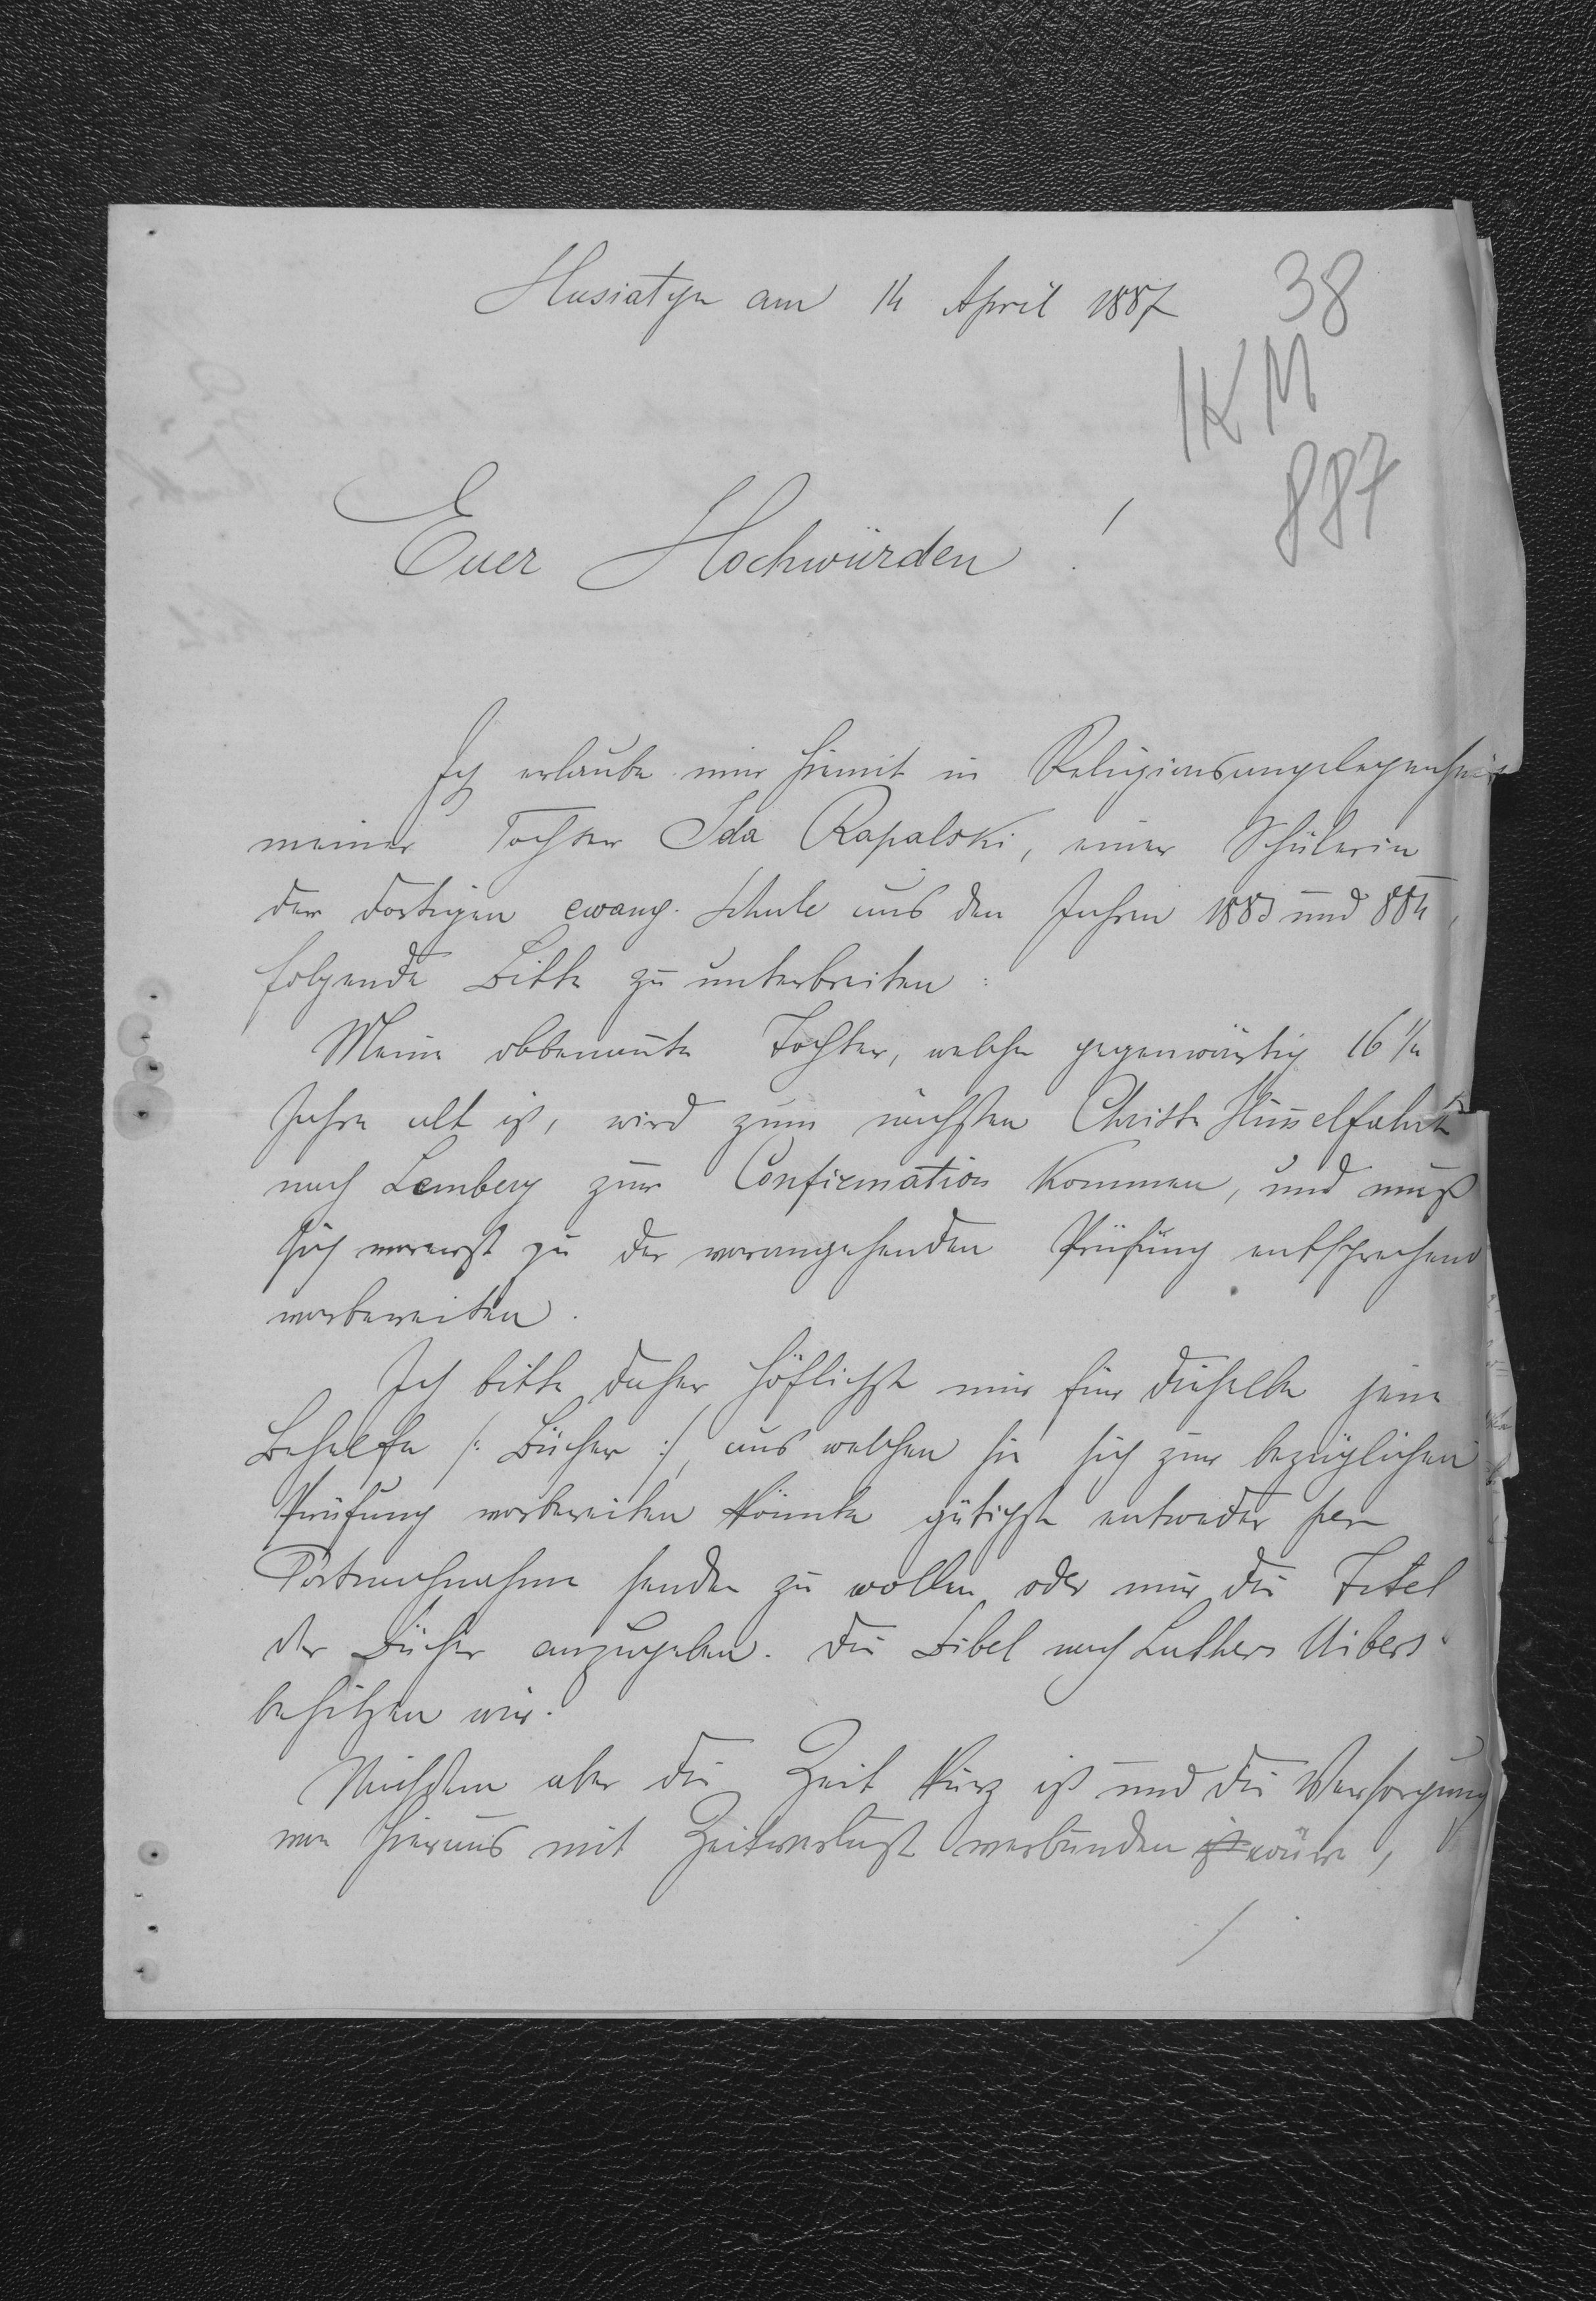 Husiatyn am 14 April 1887
38
1KM
887
Euer Hochwürden!
Ich erlaube mir hiemit in Religionsangelegenheit
meiner Tochter Ida Rapalski, einer Schülerin
der dortigen evang. Schule aus den Jahren 1883 und 884,
folgende Bitte zu unterbreiten:
Meine obbenannte Tochter, welche gegenwärtig 16 1/2
Jahre alt ist, wird zum nächsten Christi Him̅elfahrt
nach Lemberg zur Confirmation kommen, und muß
sich vorerst zu der vorangehenden Prüfung entsprechend
vorbereiten.
Ich bitte daher höflichst mir für dieselbe jene
Behelfe /: Bücher :/, aus welchen sie sich zur bezüglichen
Prüfung vorbereiten könnte gütigst entweder per
Postnachnahme senden zu wollen oder mir die Titel
der Bücher anzugeben. Die Bibel nach Luthers Uibers.
besitzen wir.
Nachdem aber die Zeit kurz ist und die Versorgung
von hieraus mit Zeitverlust verbunden ist wäre,
/.